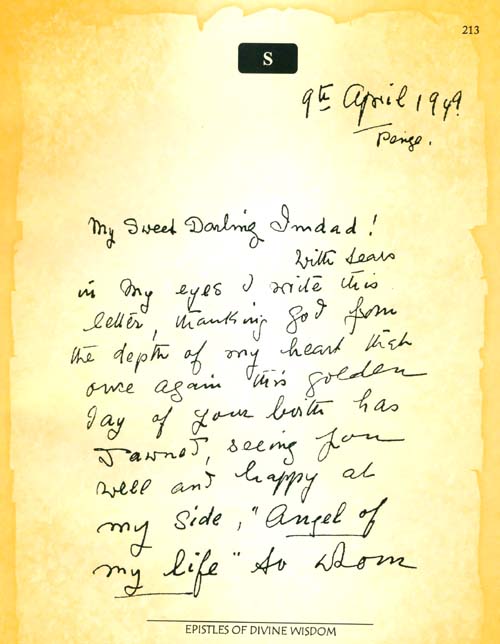 213
S
9th April 1949.
Penge.
My Sweet Darling Imdad!
With tears
in my eyes I write this
letter, thanking God from
the depth of my heart that
once again this golden
day of your birth has
dawned, seeing you
well and happy at
my side, "Angel of
my life" to whom
EPISTLES OF DIVINE WISDOM